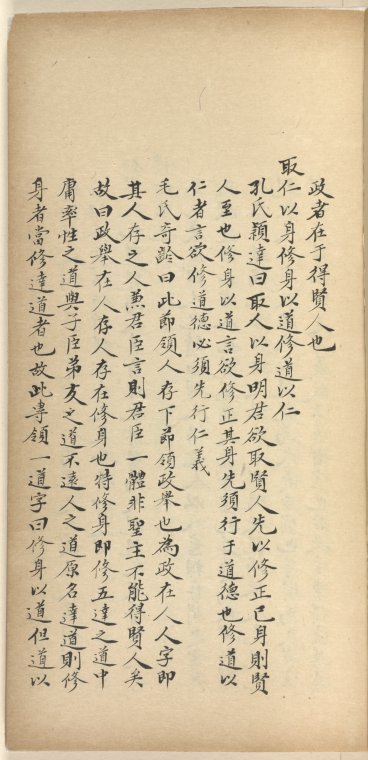 政者在于得賢人也
取仁以身修身以道修道以仁
孔氏穎達曰取人以身明君欲取賢人先以修正已身則賢
人至也修身以道言欲修正其身先須行于道德也修道以
仁者言欲修道德必須先行仁義
毛氏奇齡曰此節領人存下節領政舉也為政在人人字即
其人存之人蕙君臣言則君臣一體非聖主不能得賢人矣
故曰政舉在人存人存在修身也特修身即修五達之道中
庸率性之道與子臣弟友之道不遠人之道原名達道則修
身者當修達道者也故此專領一道字曰修身以道但道以